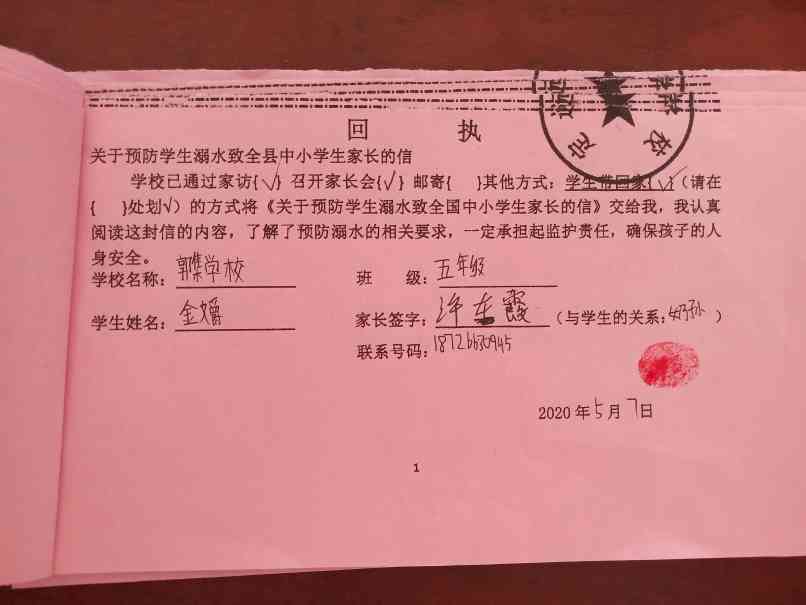 回 执
关于预防学生溺水致全县中小学生家长的信
学校已通过家访{√} 召开家长会{√} 邮寄{ }其他方式：学生带回家{√}（请在
{ }处划√）的方式将《关于预防学生溺水致全国中小学生家长的信》交给我，我认真
阅读这封信的内容，了解了预防溺水的相关要求，一定承担起监护责任，确保孩子的人
身安全。
学校名称：郭集学校 班 级：五年级
学生姓名：金 家长签字：许 霞 （与学生的关系： ）
联系号码：18726630945
2020年5月7日
1